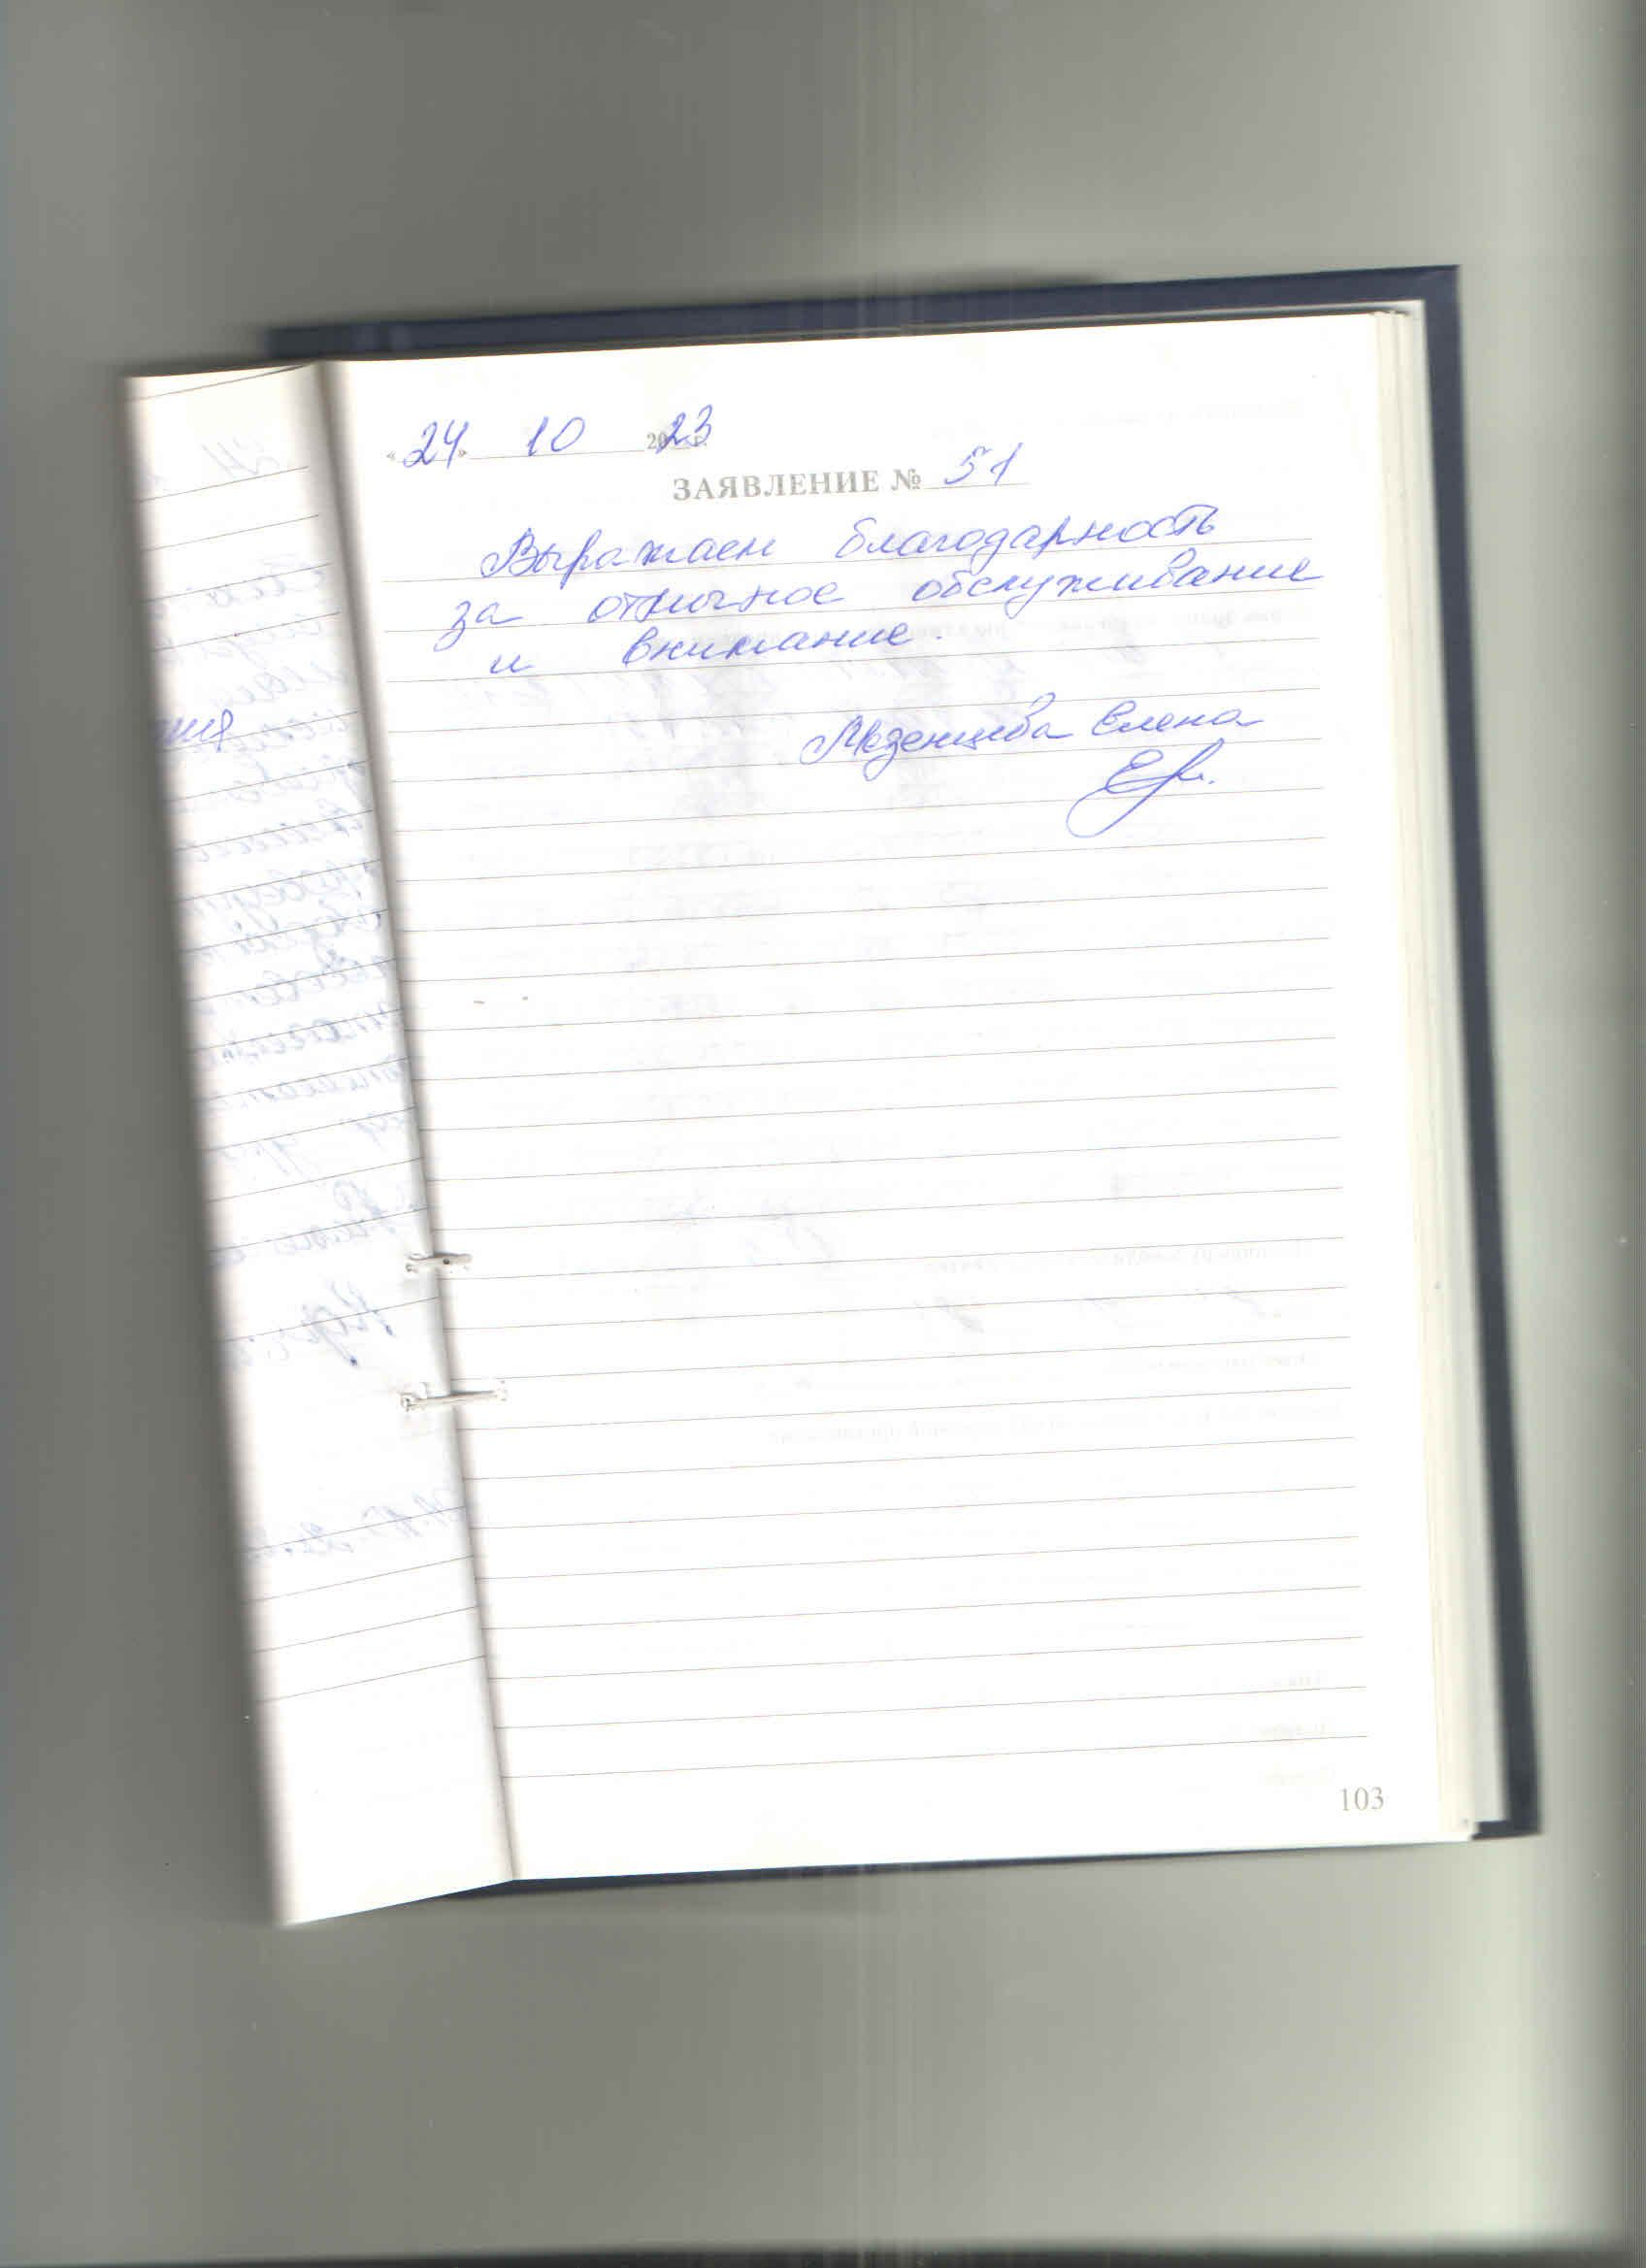 « 24 » 10 2023 г.
ЗАЯВЛЕНИЕ № 51
Выражаем благодарность
за отличное обслуживание
и внимание.
Мезенцева Елена
ния
103